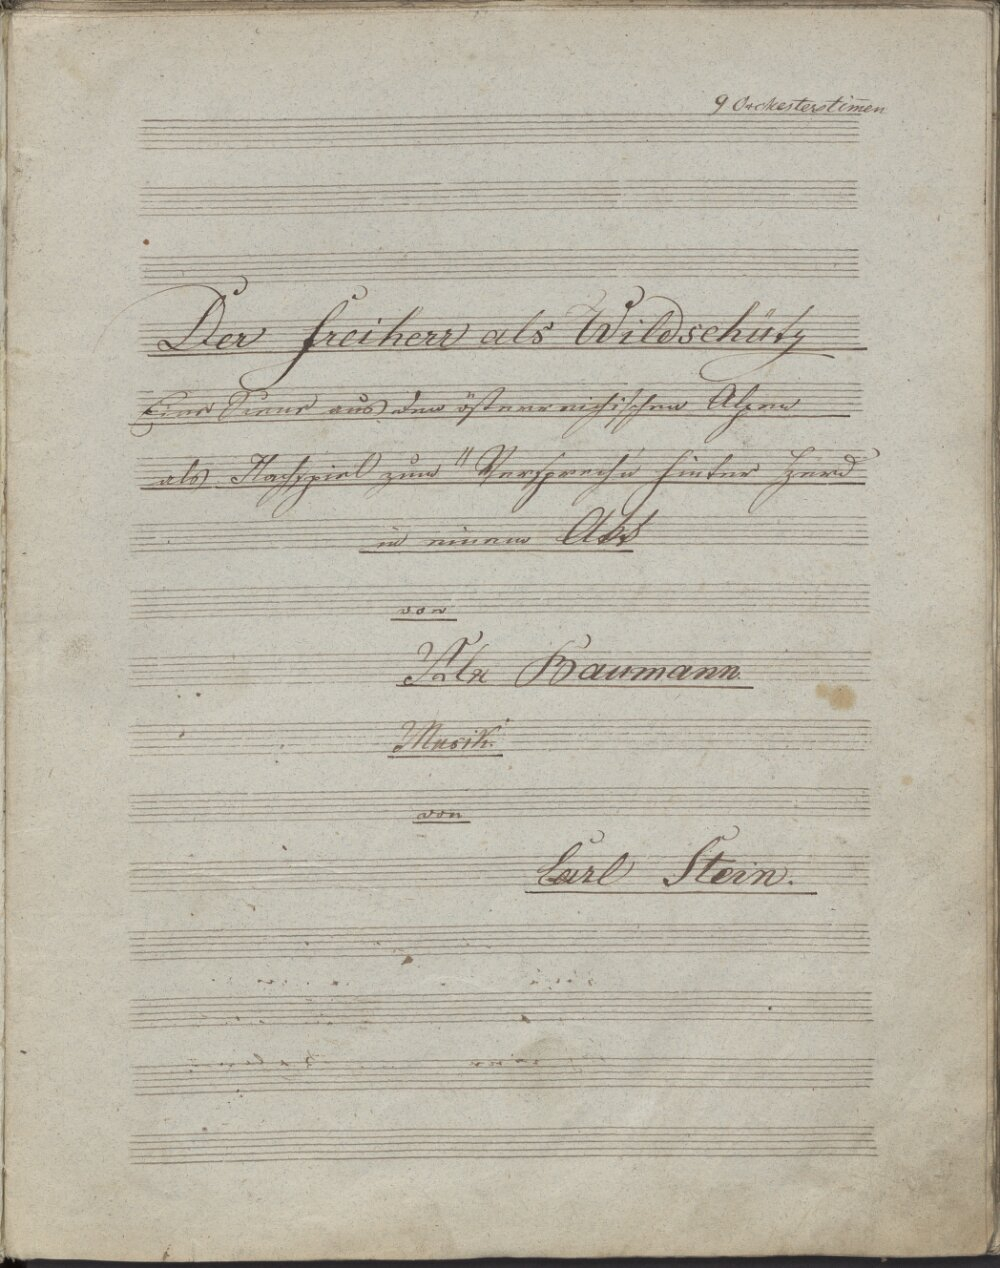 9 Orchesterstim̄en
Der Freiherr als Wildschütz
Eine Scene aus den österreichischen Alpen
als Nachspiel zum "Versprech'n hinter Herd
in einem Akt
von
Alex Baumann.
Musik.
von
Carl Stein.